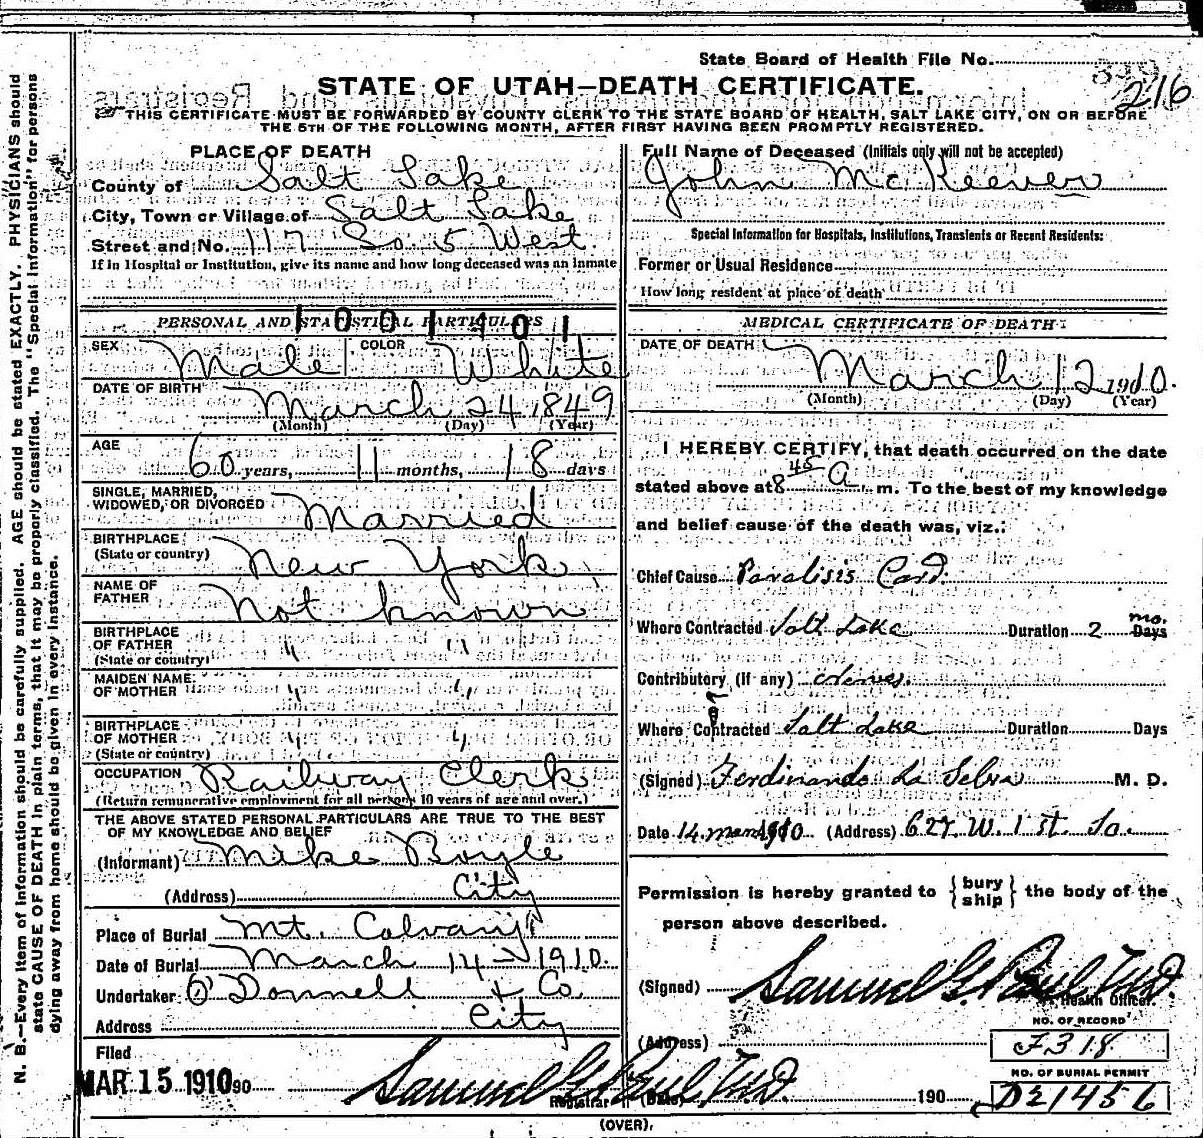 State Board of Health File No.
216
STATE OF UTAH—DEATH CERTIFICATE.
THIS CERTIFICATE MUST BE FORWARDED BY COUNTY CLERK TO THE STATE BOARD OF HEALTH, SALT LAKE CITY, ON OR BEFORE
THE 5TH OF THE FOLLOWING MONTH, AFTER FIRST HAVING BEEN PROMPTLY REGISTERED.
PLACE OF DEATH
County of Salt Lake
City, Town or Village of Salt Lake
Street and No. 117 So. 5 West.
If in Hospital or Institution, give its name and how long deceased was an inmate
Full Name of Deceased (Initials only will not be accepted)
John McKeever
Special Information for Hospitals, Institutions, Transients or Recent Residents:
Former or Usual Residence
How long resident at place of death
PERSONAL AND STATISTICAL PARTICULARS
1001401
SEX Male COLOR White
DATE OF BIRTH
March 24, 1849
(Month) (Day) (Year)
AGE
60 years, 11 months, 18 days
SINGLE, MARRIED,
WIDOWED, OR DIVORCED Married
BIRTHPLACE
(State or country) New York
NAME OF
FATHER Not known
BIRTHPLACE
OF FATHER " "
(State or country)
MAIDEN NAME
OF MOTHER " "
BIRTHPLACE
OF MOTHER " "
(State or country)
OCCUPATION Railway Clerk
(Return remunerative employment for all persons 10 years of age and over.)
THE ABOVE STATED PERSONAL PARTICULARS ARE TRUE TO THE BEST
OF MY KNOWLEDGE AND BELIEF
(Informant) Mike Boyle
(Address) City
Place of Burial Mt. Calvary
Date of Burial March 14 1910.
Undertaker O'Donnell & Co.
Address City
Filed
MAR 15 1910 90
Samuel G. Paul M.D.
Registrar
MEDICAL CERTIFICATE OF DEATH
DATE OF DEATH
March 12 1910.
(Month) (Day) (Year)
I HEREBY CERTIFY, that death occurred on the date
stated above at 8 45 A. m. To the best of my knowledge
and belief cause of the death was, viz.:
Chief Cause Paralisis Card.
Where Contracted Salt Lake Duration 2 mo. Days
Contributory (if any) Nerves.
Where Contracted Salt Lake Duration Days
(Signed) Ferdinando La Selva M. D.
Date 14 1910 (Address) 627. W. 1 st. So.
Permission is hereby granted to {bury
ship} the body of the
person above described.
(Signed) Samuel G. Paul M.D.
Health Officer.
(Address)
NO. OF RECORD
F318
NO. OF BURIAL PERMIT
(Date) 190 D21456
(OVER).
N. B.—Every item of information should be carefully supplied. AGE should be stated EXACTLY. PHYSICIANS should
state CAUSE OF DEATH in plain terms, that it may be properly classified. The "Special Information" for persons
dying away from home should be given in every instance.